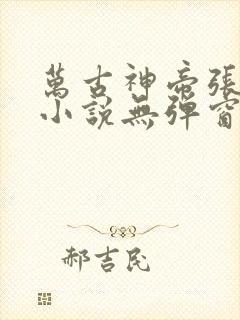 萬古神帝張
小說無彈窗
郝吉民